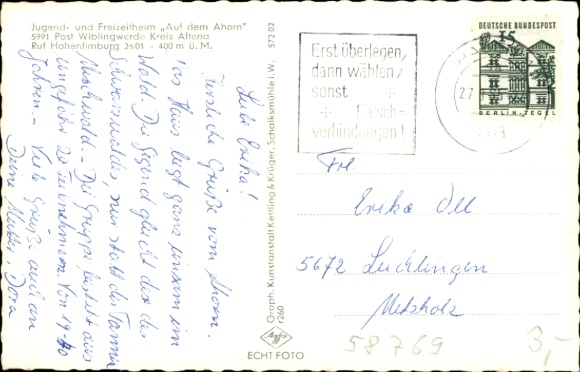 Jugend- und Freizeitheim „Auf dem Ahorn"
5991 Post Wiblingwerde Kreis Altena
Ruf Hohenlimburg 2601 - 400 m ü. M.
572 02
Liebe Erika!
Herzliche Grüße vom Ahorn.
Das Haus liegt ganz einsam im
Wald. Die Gegend gleicht der des
Schwarzwaldes, nur statt der Tannen
Mischwald. - Die Gruppe besteht aus
ungefähr 20 Teilnehmern von 19-70
Jahren. - Viele Grüße auch an
Deine Mutter Dora
Graph. Kunstanstalt Kettling & Krüger, Schalksmühle i. W.
r260
Agfa
ECHT FOTO
Erst überlegen,
dann wählen,
sonst
Falsch-
verbindungen!
DEUTSCHE BUNDESPOST
15
BERLIN-TEGEL
27
Frl.
Erika Oll
5672 Leichlingen
Metzholz
58769
3,-